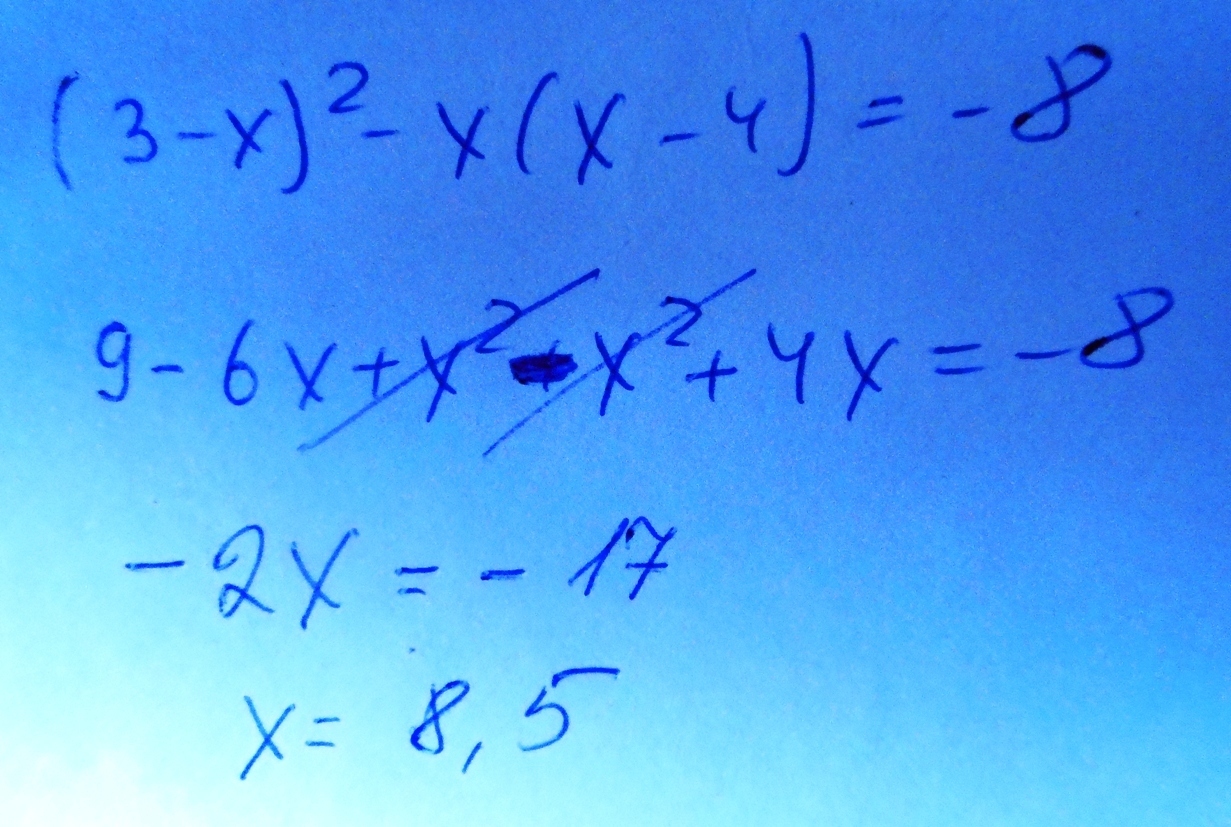 (3-x)² - x(x-4) = -8
9 - 6x + x² - x² + 4x = -8
-2x = -17
x = 8,5